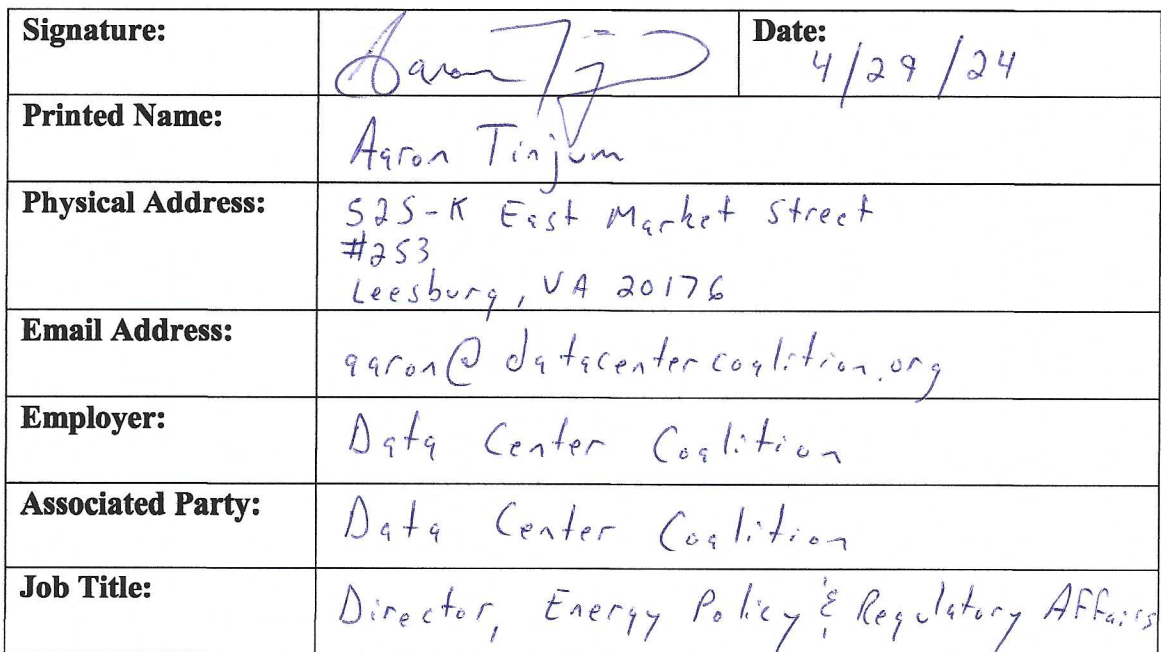 Signature: Aaron Tinj Date:
4/29/24
Printed Name: Aaron Tinjum
Physical Address: 525-K East Market Street
#253
Leesburg, VA 20176
Email Address: aaron@datacentercoalition.org
Employer: Data Center Coalition
Associated Party: Data Center Coalition
Job Title: Director, Energy Policy & Regulatory Affairs